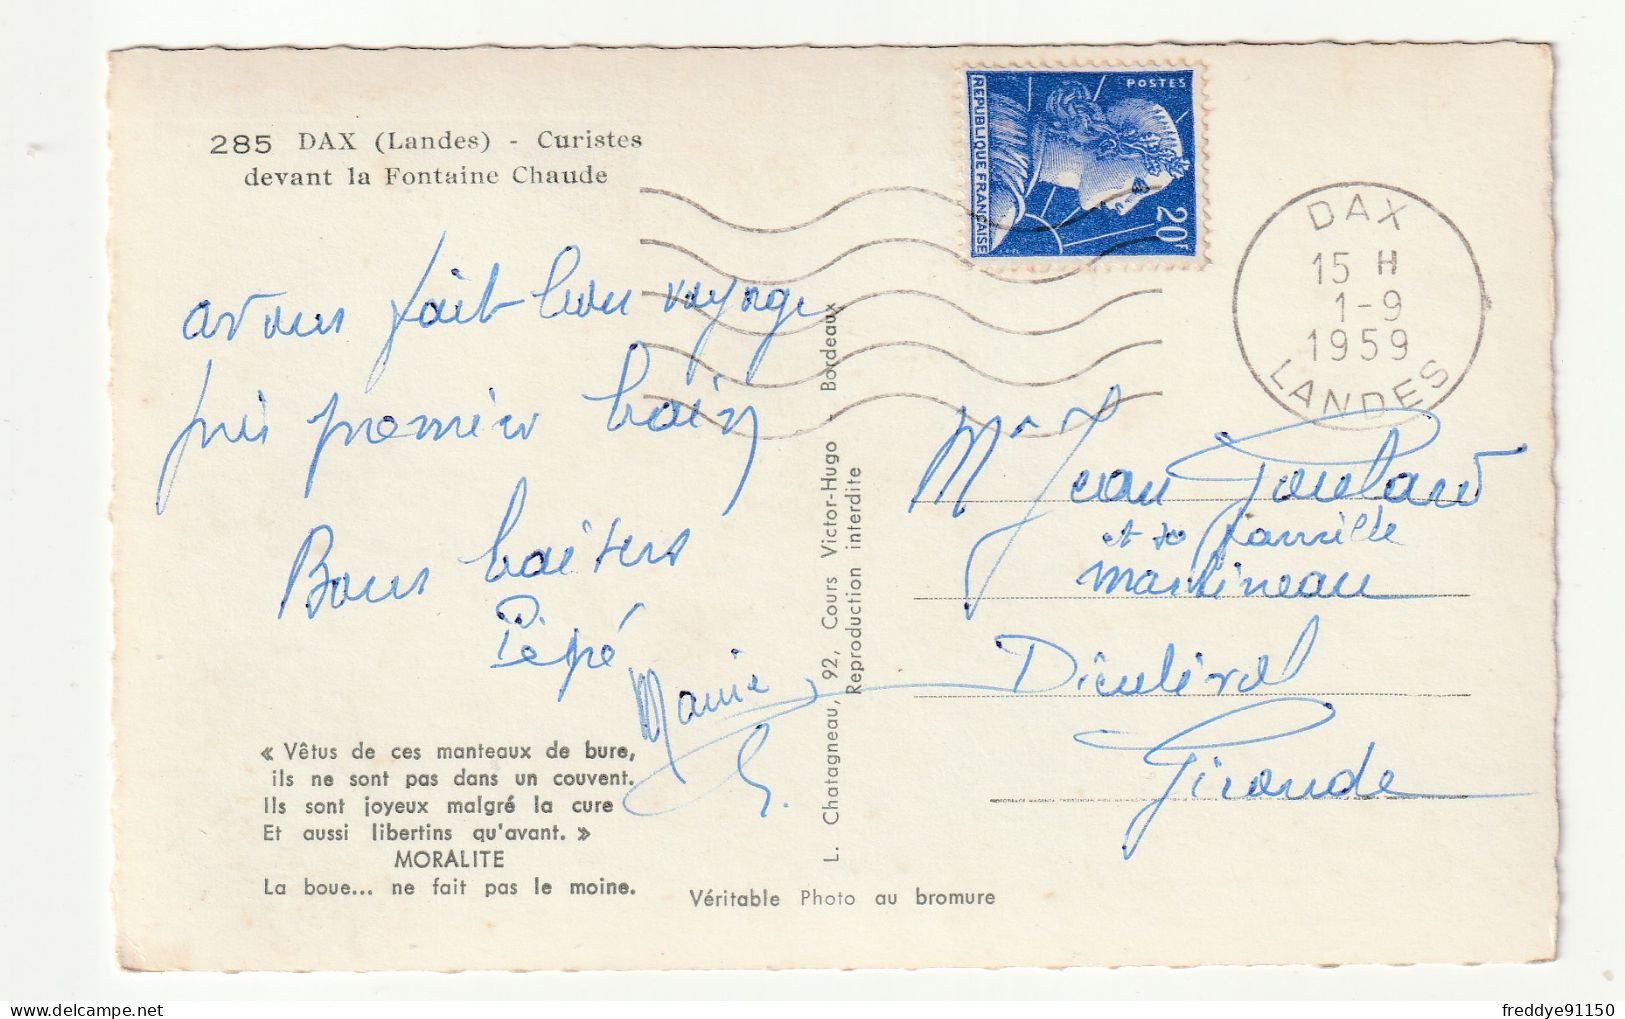 285 DAX (Landes) - Curistes
devant la Fontaine Chaude
avons fait bon voyage
pris premier bain
Bons baisers
Pépé
Mamie
« Vêtus de ces manteaux de bure,
ils ne sont pas dans un couvent.
Ils sont joyeux malgré la cure
Et aussi libertins qu'avant. »
MORALITE
La boue... ne fait pas le moine.
Véritable Photo au bromure
L. Chatagneau, 92, Cours Victor-Hugo - Bordeaux
Reproduction interdite
POSTES
REPUBLIQUE FRANÇAISE
20F
DAX
15 H
1-9
1959
LANDES
Mr Jean Poulard
et sa famille
Martineau
Dieulivol
Gironde
freddye91150